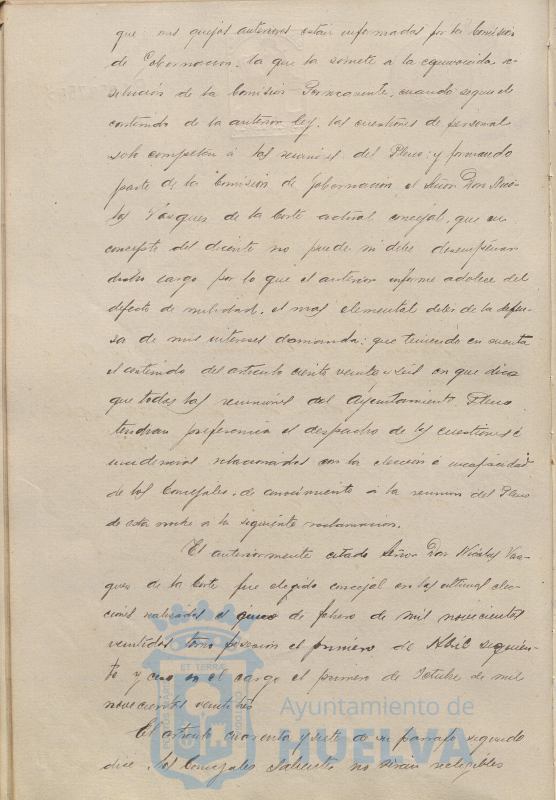 que mis quejas anteriores estan informadas por la Comision
de Gobernacion, la que la somete a la equivocada re-
solucion de la Comision Permanente, cuando segun el
contenido de la anterior ley, las cuestiones de personal
solo competen á las reuniones del Pleno: y formando
parte de la Comision de Gobernacion el Señor Don Nico-
las Vasques de la Corte actual concejal, que en
concepto del dicente no puede ni debe desempeñar
dicho cargo por lo que el anterior informe adolece del
defecto de nulidad, el mas elemental deber de la defen-
sa de mis intereses demanda: que teniendo en cuenta
el contenido del articulo ciento veinte y seis en que dice
que todas las reuniones del Ayuntamiento Pleno
tendran preferencia el despacho de las cuestiones é
incidencias relacionadas con la eleccion é incapacidad
de los Concejales, de conocimiento á la reunion del Pleno
de esta noche á la siguiente reclamacion.
El anteriormente citado Señor Don Nicolas Vas-
ques de la Corte fue elegido concejal en las ultimas elec-
ciones realizadas el cinco de febrero de mil novecientos
veintidos tomo posesion el primero de Abril siguien-
te y ceso en el cargo el primero de Octubre de mil
novecientos veintitres
El articulo cuarenta y siete de su parrafo segundo
dice, los Concejales salientes no serán reelegibles
ET TERRA
Ayuntamiento de
HUELVA